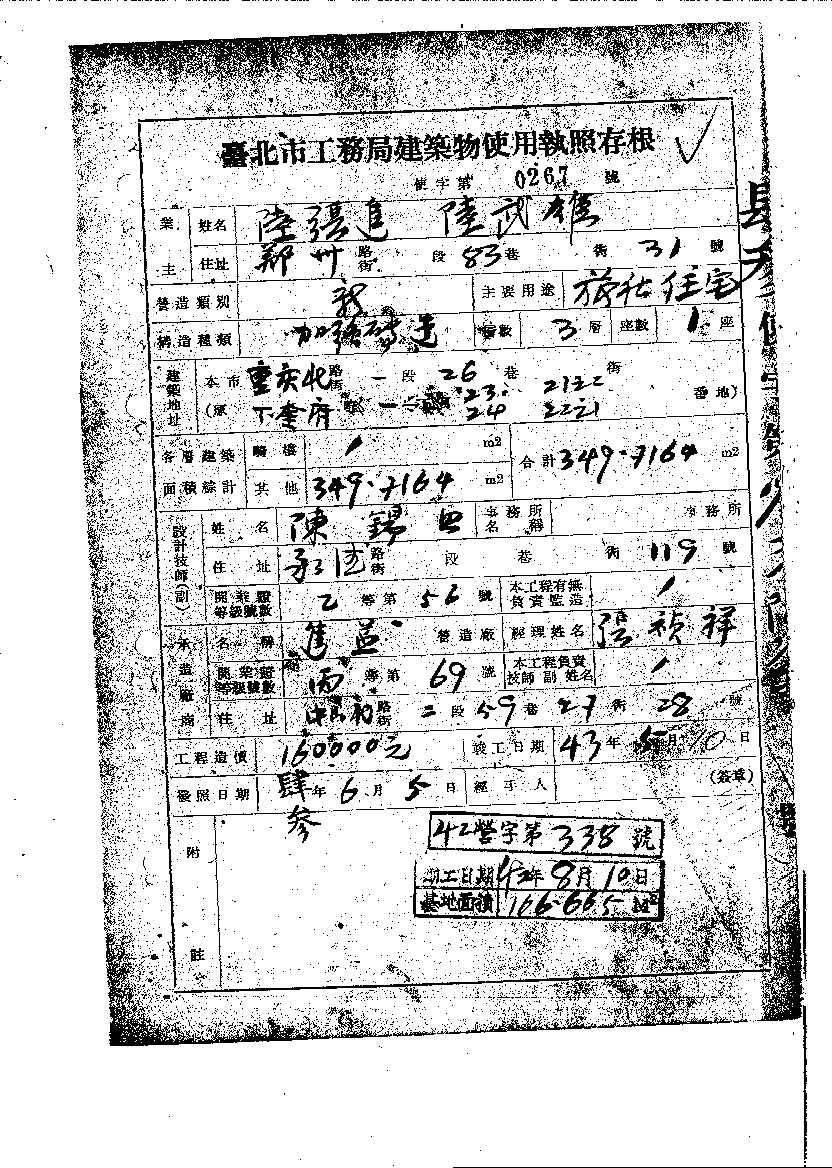 臺北市工務局建築物使用執照存根
使字第 0267 號
業主 姓名 陸張進 陸武雄
住址 鄭州路街 段 83巷 街 31 號
營造類別 新 主要用途 旅社住宅
構造種類 加強磚造 層數 3層 座數 1座
建築地址 本市 重慶北路街 一段 26巷 街
(原 下奎府 番地)
各層建築面積綜計 騎樓 / m2 合計 349.7164 m2
其他 349.7164 m2
設計技師(副) 姓名 陳錫 事務所名稱 事務所
住址 承德路街 段 巷 街 119 號
開業證等級號數 乙等第 56 號 本工程有無負責監造 /
承造廠商 名稱 益 營造廠 經理姓名 張禎祥
開業證等級號數 丙等第 69 號 本工程負責技師副姓名 /
住址 中山北路街 二段 59巷 27街 28號
工程造價 160000元 竣工日期 43年 5月 10日
發照日期 肆參年 6月 5日 經手人 (簽章)
附註
42營字第 338 號
動工日期 42年 8月 10日
基地面積 166.665 M2